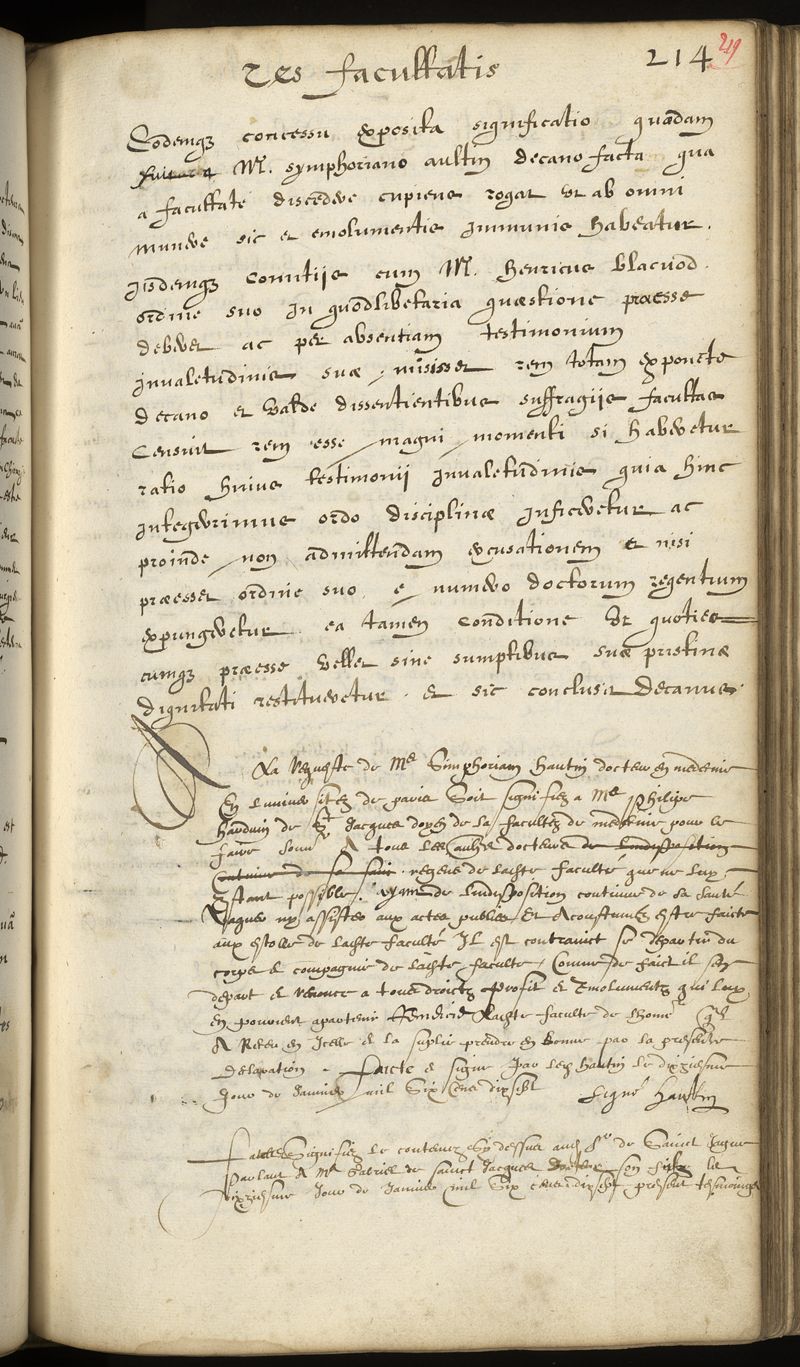 res facultatis 214 219
Eodemque concessu exposita significatio quædam
M. symphoriano aultin decano facta qua
a facultate discedere cupiens rogat ut ab omni
munere sic et emolumentis immunis habeatur.
Iisdemque Comitiis cum M. Henricus Blacvod
ordine suo in quodlibetaria quæstione præesse
deberet ac per absentiam testimonium
invaletudinis suæ misisset rem totam exponente
decano et valde dissentientibus suffragiis facultas
Censuit rem esse magni momenti si haberetur
ratio huius testimonii invaletudinis quia hinc
integerrimus ordo disciplinæ inficeretur ac
proinde non admittendam excusationem et nisi
præesset ordine suo e numero doctorum regentium
expungeretur ea tamen conditione ut quoties
cumque præesse vellet sine sumptibus suæ pristinæ
dignitati restitueretur. et sic conclusit decanus.
A La Requeste de Me Simphorian Hautin docteur en medecine
En Luniversitez de paris Soit signifiez a Me Philipe
Harduin de St Jacques doyen de la facultez de medecine pour le
faire A tous les aultres docteurs de Lindisposition
regens de ladite faculté que ne luy
Estant possible de Lindisposition continue de sa santé
vaquer ny assister aux actes publics et acoustumez estre faicts
aux escolles de ladite faculté Il est contrainct se departir du
corps et compagnie de ladite faculté, Comme de faict il sen
depart et renonce a tous droictz profit et Emolumentz qui luy
en pouroient apartenir Remercie Ladite faculté de Lhonneur
A Receu en Icelle et la suplie prendre en bonne part la presente
declaration. Faicte et signé par led Hautin le dixiesme
Jour de Janvier mil Six Cens dixsept Signé Hautin
Signifiez le contenu Cy dessus aud Sr de Sainct Jaques
Parlant A Me Gabriel de sainct Jacques son filz le
dixiesme Jour de Janvier mil Six cens dixsept present tesmoings